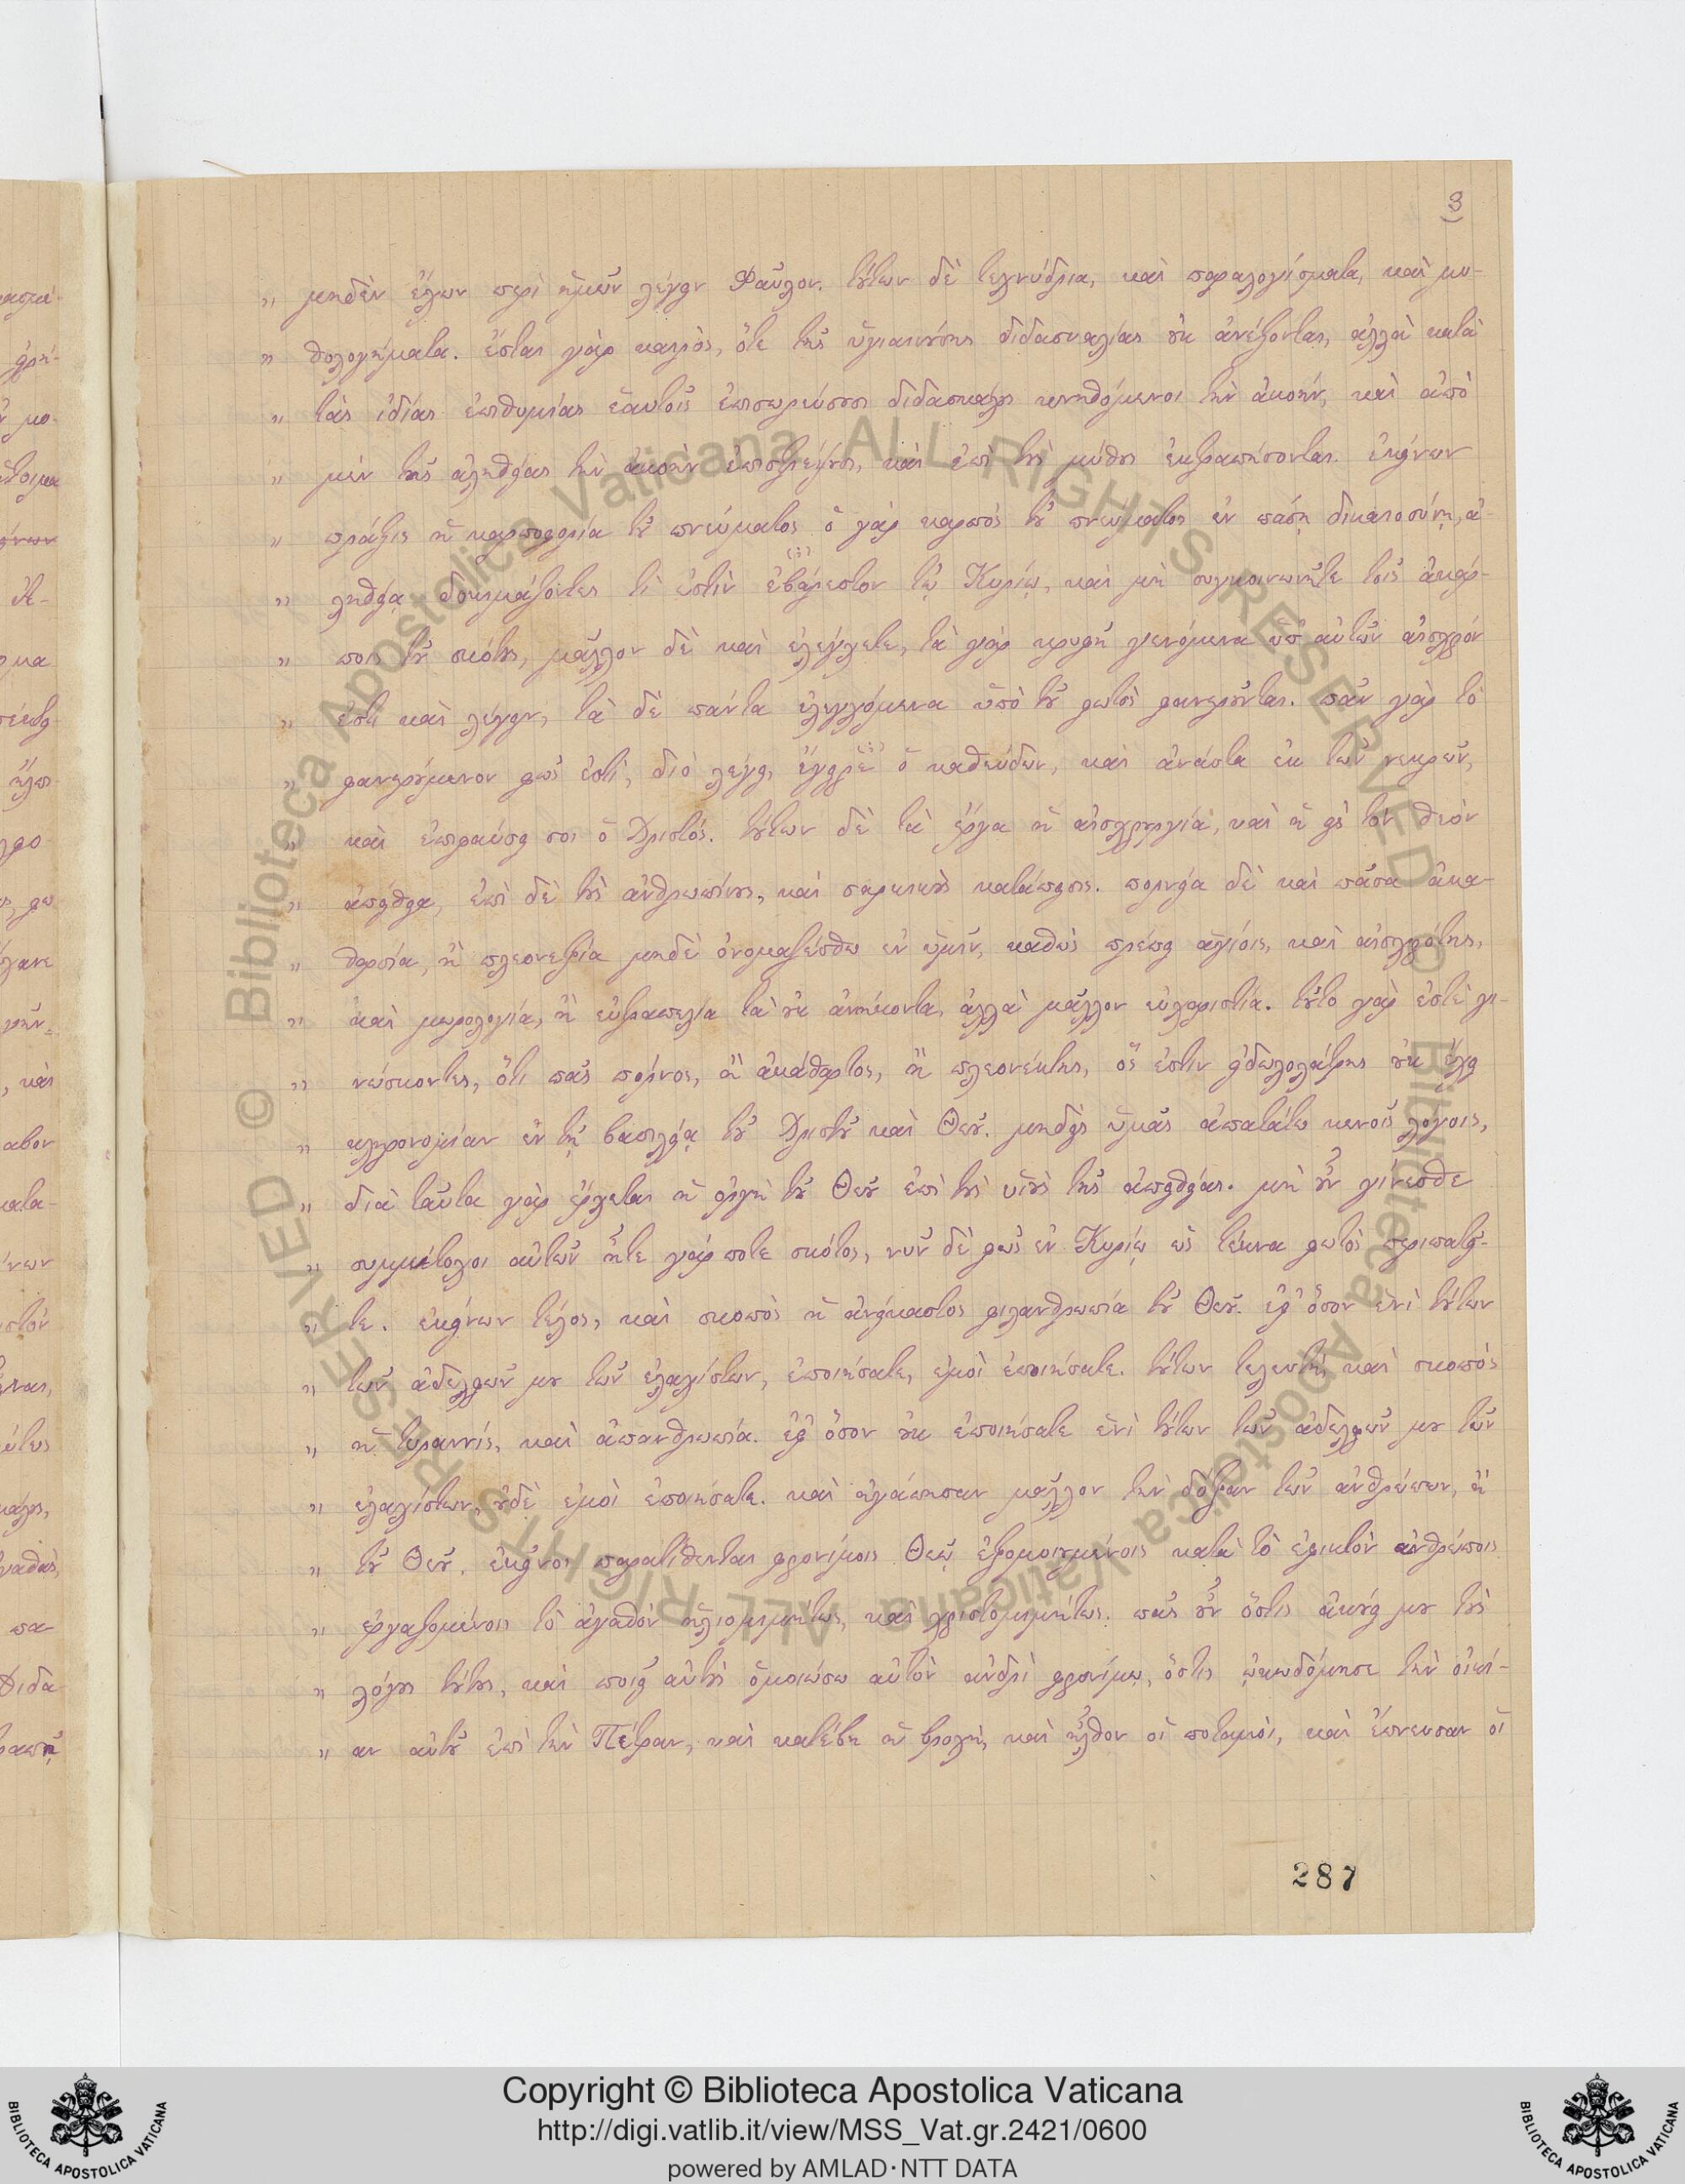 3
„ μηδὲν ἔχων περὶ ἡμῶν λέγειν Φαῦλον. τούτων δὲ τεχνύδρια, καὶ παραλογίσματα, καὶ μυ-
„ θολογήματα. ἔσται γὰρ καιρὸς, ὅτε τῆς ὑγιαινούσης διδασκαλίας οὐκ ἀνέξονται, ἀλλὰ κατὰ
„ τὰς ἰδίας ἐπιθυμίας ἑαυτοῖς ἐπισωρεύσουσι διδασκάλους κνηθόμενοι τὴν ἀκοήν, καὶ ἀπὸ
„ μὲν τῆς ἀληθείας τὴν ἀκοὴν ἐπιστρέψουσι, καὶ ἐπὶ τοὺς μύθους ἐκτραπήσονται. ἐκείνων
„ πράξις ἡ καρποφορία τοῦ πνεύματος ὁ γὰρ καρπός τοῦ πνεύματος ἐν πάσῃ δικαιοσύνῃ, ἀ-
„ ληθείᾳ δοκιμάζοντες τί ἐστὶν ἐβάρεστον (;) τῷ Κυρίῳ, καὶ μὴ συγκοινωνεῖτε τοῖς ἀκάρ-
„ ποις τοῦ σκότους, μᾶλλον δὲ καὶ ἐλέγχετε, τὰ γὰρ κρυφῆ γινόμενα ὑπ' αὐτῶν αἰσχρόν
„ ἐστι καὶ λέγειν, τὰ δὲ πάντα ἐλεγχόμενα ὑπὸ τοῦ φωτὸς φανεροῦνται. πᾶν γὰρ τὸ
„ φανερούμενον φῶς ἐστὶ, διὸ λέγει, ἔγειρε (;) ὁ καθεύδων, καὶ ἀνάστα ἐκ τῶν νεκρῶν,
„ καὶ ἐπιφαύσει σοι ὁ Χριστός. τούτων δὲ τὰ ἔργα ἡ αἰσχρουργία, καὶ ἡ εἰς τὸν θεὸν
„ ἀπείθεια, ἐπὶ δὲ τοὺς ἀνθρωπίνους, καὶ σαρκικοὺς κατάπεισις. πορνεία δὲ καὶ πᾶσα ἀκα-
„ θαρσία, ἢ πλεονεξία μηδὲ ὀνομαζέσθω ἐν ὑμῖν, καθὼς πρέπει ἁγίοις, καὶ αἰσχρότης,
„ καὶ μωρολογία, ἢ εὐτραπελία τὰ οὐκ ἀνήκοντα, ἀλλὰ μᾶλλον εὐχαριστία. τοῦτο γὰρ ἐστὲ γι-
„ νώσκοντες, ὅτι πᾶς πόρνος, ἢ ἀκάθαρτος, ἢ πλεονέκτης, ὅς ἐστιν εἰδωλολάτρης οὐκ ἔχει
„ κληρονομίαν ἐν τῇ βασιλείᾳ τοῦ Χριστοῦ καὶ Θεοῦ. μηδεὶς ὑμᾶς ἀπατάτω κενοῖς λόγοις,
„ διὰ ταῦτα γὰρ ἔρχεται ἡ ὀργὴ τοῦ Θεοῦ ἐπὶ τοὺς υἱοὺς τῆς ἀπειθείας. μὴ οὖν γίνεσθε
„ συμμέτοχοι αὐτῶν ἦτε γάρ ποτε σκότος, νῦν δὲ φῶς ἐν Κυρίῳ ὡς τέκνα φωτὸς περιπατεῖ-
„ τε. ἐκείνων τέλος, καὶ σκοπὸς ἡ ἀνείκαστος φιλανθρωπία τοῦ Θεοῦ. ἐφ' ὅσον ἑνὶ τούτων
„ τῶν ἀδελφῶν μου τῶν ἐλαχίστων, ἐποιήσατε, ἐμοὶ ἐποιήσατε. τούτων τελευτή, καὶ σκοπός
„ ἡ τυραννίς, καὶ ἀπανθρωπία. ἐφ' ὅσον οὐκ ἐποιήσατε ἑνὶ τούτων τῶν ἀδελφῶν μου τῶν
„ ἐλαχίστων, οὐδὲ ἐμοὶ ἐποιήσατε. καὶ ἠγάπησαν μᾶλλον τὴν δόξαν τῶν ἀνθρώπων, ἢ
„ τοῦ Θεοῦ. ἐκεῖνοι παρατίθενται φρονίμοις Θεῷ ἐξομοιουμένοις κατὰ τὸ ἐφικτὸν ἀνθρώποις
„ ἐργαζομένοις τὸ ἀγαθὸν ἡλιομιμήτως, καὶ χριστομιμήτως. πᾶς οὖν ὅστις ἀκούει μου τοὺς
„ λόγους τούτους, καὶ ποιεῖ αὐτοὺς ὁμοιώσω αὐτὸν ἀνδρὶ φρονίμῳ, ὅστις ᾠκοδόμησε τὴν οἰκί-
„ αν αὐτοῦ ἐπὶ τὴν Πέτραν, καὶ κατέβη ἡ βροχή, καὶ ἦλθον οἱ ποταμοὶ, καὶ ἔπνευσαν οἱ
287
Copyright © Biblioteca Apostolica Vaticana
http://digi.vatlib.it/view/MSS_Vat.gr.2421/0600
powered by AMLAD·NTT DATA